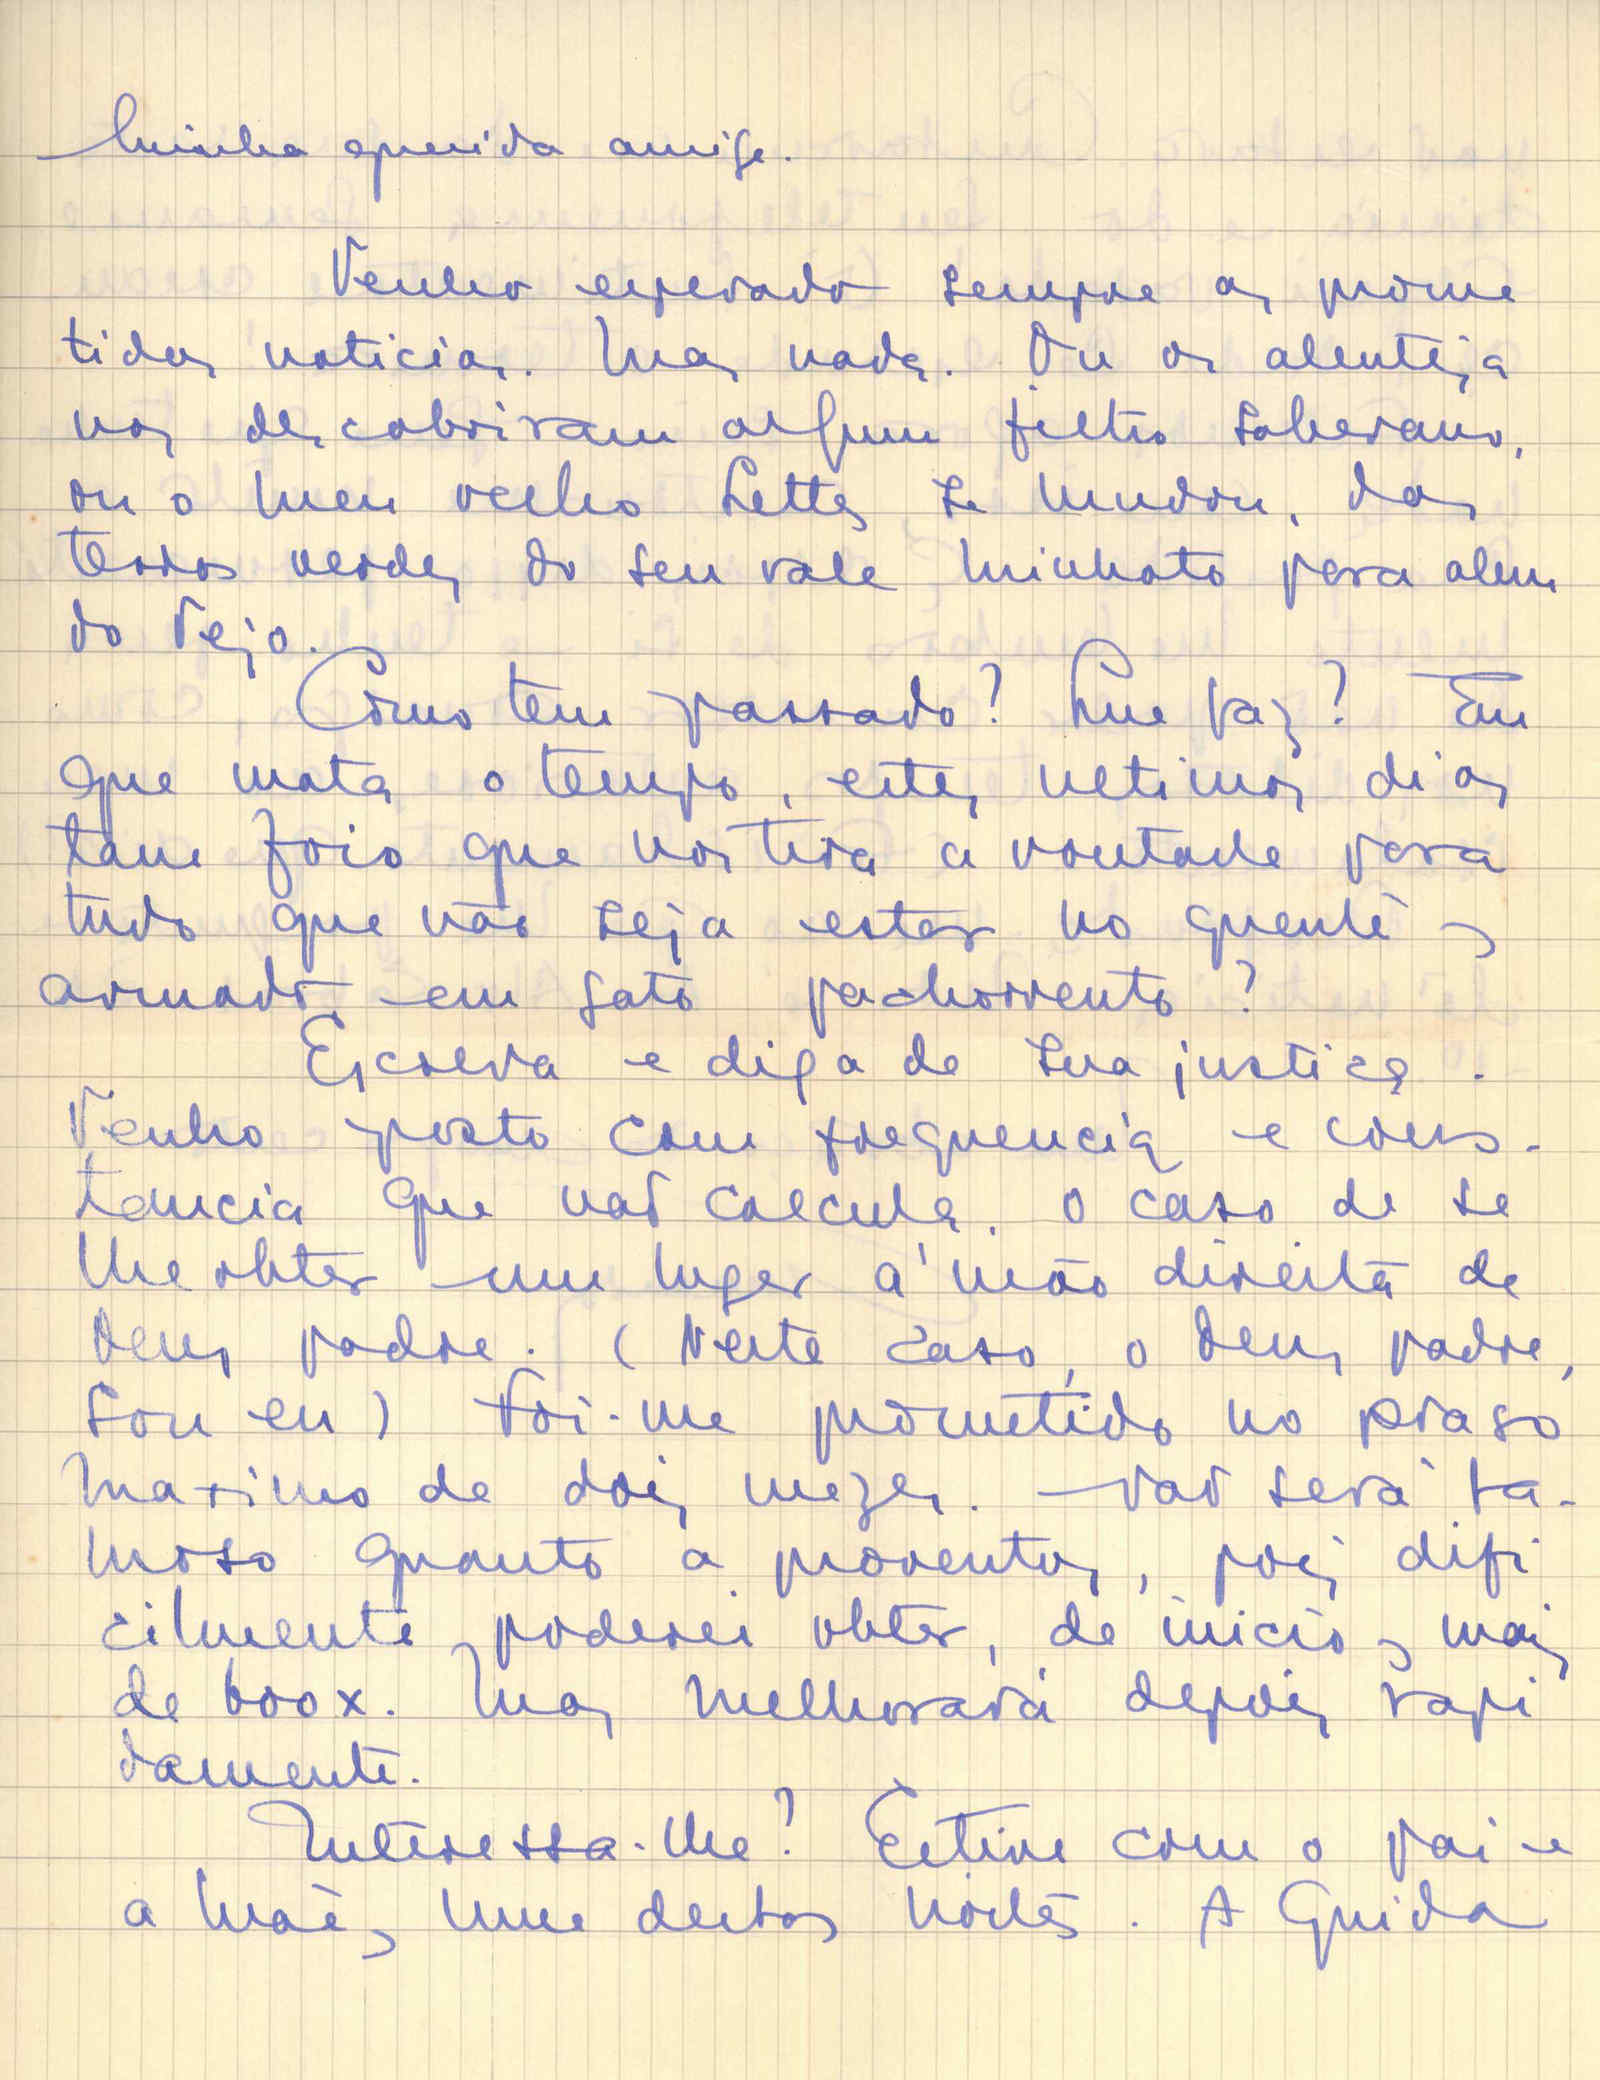 Minha querida amiga.
Tenho esperado sempre as prome
tidas noticias. Mas nada. Ou os alenteja
nos descobriram algum filtro soberano,
ou o meu velho Lethes se mudou, das
terras verdes do seu vale minhoto para alem
do Tejo.
Como tem passado? Que faz? Em
que mata o tempo, estes ultimos dias
tam frios que nos tira a vontade para
tudo que não seja estar no quente,
armado em gato pachorrento?
Escreva e diga de sua justiça.
Tenho posto com frequencia e cons-
tancia que não calcula, o caso de se
lhe obter um lugar á mão direita de
Deus padre. (Neste caso, o Deus padre,
sou eu) Foi-me prometido no praso
maximo de dois mezes. Não será fa-
moso quanto a proventos, pois difi
cilmente poderei obter, de inicio, mais
de     . Mas melhorará depois rapi
damente.
Interessa-lhe? Estive com o pai e
a mãe, uma destas noites. A Guida